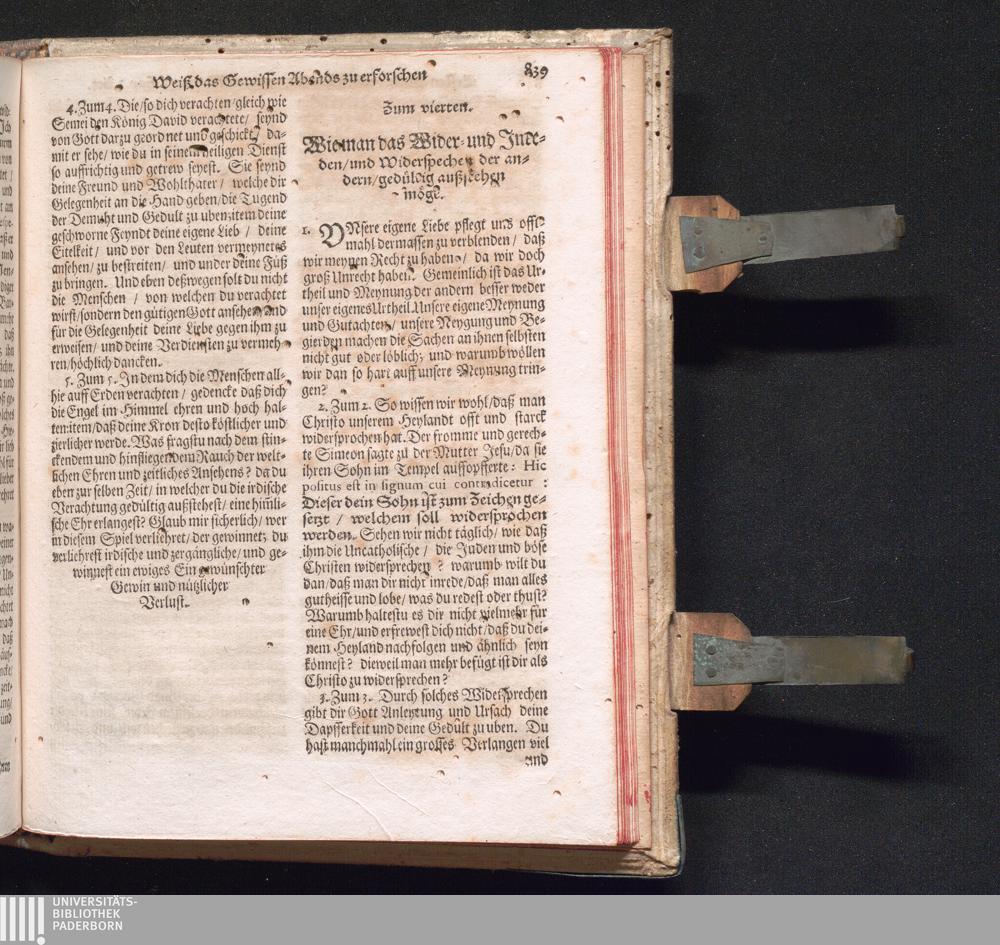 Weiß das Gewissen Abends zu erforschen
839
4. Zum 4. Die/so dich verachten/gleich wie
Semei den König David verachtete/ seynd
von Gott darzu geordnet und geschickt/ da-
mit er sehe/wie du in seinem heiligen Dienst
so auffrichtig und getrew seyest. Sie seynd
deine Freund und Wohlthäter/ welche dir
Gelegenheit an die Hand geben/die Tugend
der Demuht und Gedult zu uben:item deine
geschworne Feyndt deine eigene Lieb / deine
Eitelkeit/ und vor den Leuten vermeyntes
ansehen/ zu bestreiten/ und under deine Füß
zu bringen. Und eben deßwegen solt du nicht
die Menschen / von welchen du verachtet
wirst/sondern den gütigen Gott ansehen/und
für die Gelegenheit deine Liebe gegen ihn zu
erweisen/ und deine Verdiensten zu vermeh-
ren/höchlich dancken.
5. Zum 5. In dem dich die Menschen all-
hie auff Erden verachten/ gedencke daß dich
die Engel im Himmel ehren und hoch hal-
ten:item/daß deine Kron desto köstlicher und
zierlicher werde. Was fragstu nach dem stin-
ckendem und hinfliegendem Rauch der welt-
lichen Ehren und zeitliches Ansehens? da du
eben zur selben Zeit/ in welcher du die irdische
Verachtung gedültig außstehest/ eine himli-
sche Ehr erlangest? Glaub mir sicherlich/ wer
in diesem Spiel verliehret/ der gewinnet; du
verliehrest irdische und zergängliche/ und ge-
winnest ein ewiges Ein gewünschter
Gewin und nützlicher
Verlust.
Zum vierten.
Wie man das Wider- und Inre-
den/und Widerspechen der an-
dern/gedültig außstehen
möge.
1. UNsere eigene Liebe pflegt uns offt-
mahl dermassen zu verblenden/ daß
wir meynen Recht zu haben/ da wir doch
groß Unrecht haben. Gemeinlich ist das Ur-
theil und Meynung der andern besser weder
unser eigenes Urtheil. Unsere eigene Meynung
und Gutachten/ unsere Neygung und Be-
gierden machen die Sachen an ihnen selbsten
nicht gut oder löblich; und warumb wöllen
wir dan so hart auff unsere Meynung trin-
gen?
2. Zum 2. So wissen wir wohl/ daß man
Christo unserem Heylandt offt und starck
widersprochen hat. Der fromme und gerech-
te Simeon sagte zu der Mutter Jesu/da sie
ihren Sohn im Tempel auffopfferte: Hic
positus est in signum cui contradicetur :
Dieser dein Sohn ist zum Zeichen ge-
setzt / welchem soll widersprochen
werden. Sehen wir nicht täglich/ wie daß
ihm die Uncatholische / die Juden und böse
Christen widersprechen ? warumb wilt du
dan/daß man dir nicht inrede/daß man alles
gutheisse und lobe/ was du redest oder thust?
Warumb haltestu es dir nicht vielmehr für
eine Ehr/und erfrewest dich nicht/daß du dei-
nem Heyland nachfolgen und ähnlich seyn
könnest? dieweil man mehr befügt ist dir als
Christo zu widersprechen?
3. Zum 3. Durch solches Widersprechen
gibt dir Gott Anleytung und Ursach deine
Dapfferkeit und deine Gedült zu uben. Du
hast manchmahl ein grosses Verlangen viel
und
UNIVERSITÄTS-
BIBLIOTHEK
PADERBORN